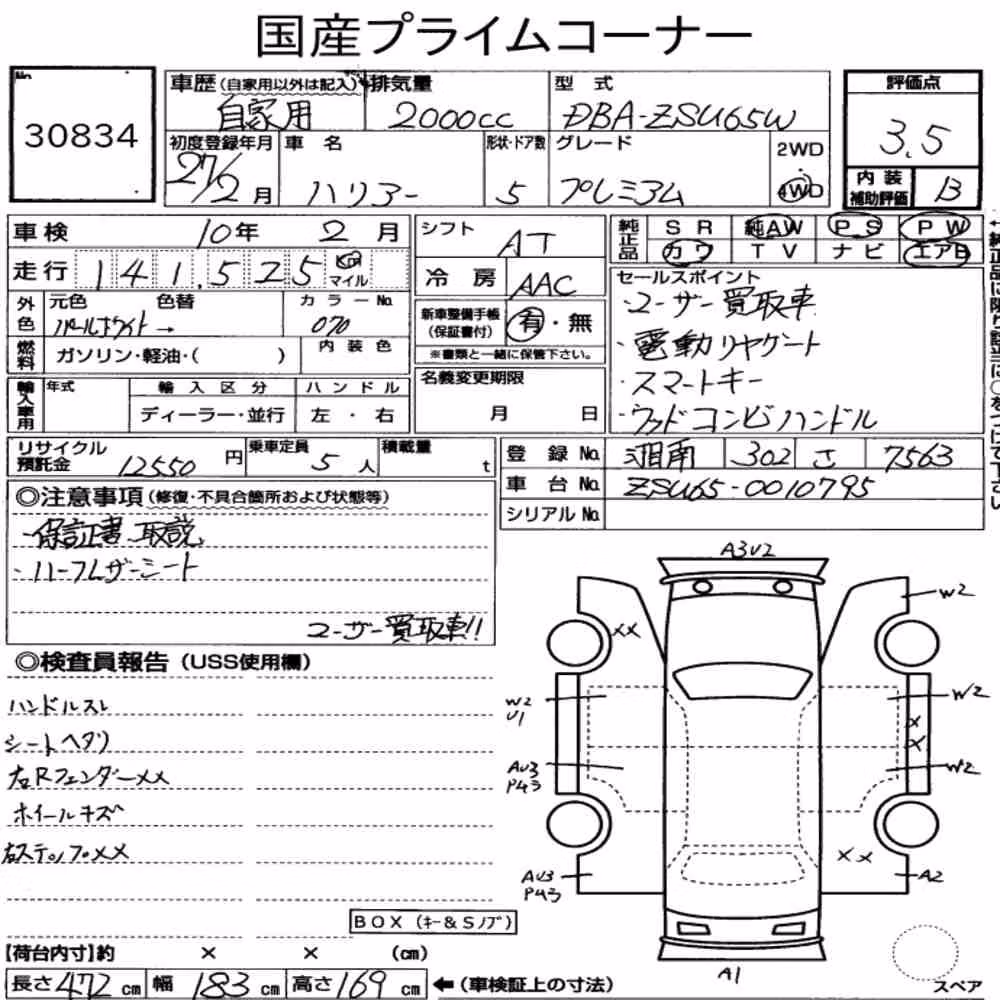 国産プライムコーナー
No.
30834
車歴(自家用以外は記入) 排気量 型式
自家用 2000cc DBA-ZSU65W
評価点
3.5
初度登録年月 車名 形状・ドア数 グレード 2WD
27/2月 ハリアー 5 プレミアム 4WD
内装補助評価 B
車検 10年 2月
走行 141,525 Km マイル
シフト AT
冷房 AAC
純正品 SR 純AW PS PW
カワ TV ナビ エアB
外色 元色 色替 カラーNo.
パールホワイト→ 070
燃料 ガソリン・軽油・( ) 内装色
新車整備手帳(保証書付) 有・無
※書類と一緒に保管下さい。
セールスポイント
・ユーザー買取車
・電動リヤゲート
・スマートキー
・ウッドコンビハンドル
輸入車用 年式 輸入区分 ハンドル
ディーラー・並行 左・右
名義変更期限
月 日
リサイクル預託金 12550円 乗車定員 5人 積載量 t
登録No. 湘南 302 さ 7563
車台No. ZSU65-0010795
シリアルNo.
◎注意事項(修復・不具合箇所および状態等)
・保証書、取説
・ハーフレザーシート
ユーザー買取車!!
◎検査員報告(USS使用欄)
ハンドルスレ
シートヘタリ
左Rフェンダーxx
ホイールキズ
右ステップxx
A3U2
W2
xx
W2
U1
W2
x
x
AU3
P43
W2
xx
AU3
P43
A2
A1
BOX(キー&Sノブ)
【荷台内寸】約 × × (cm)
長さ472cm 幅183cm 高さ169cm ←(車検証上の寸法)
スペア